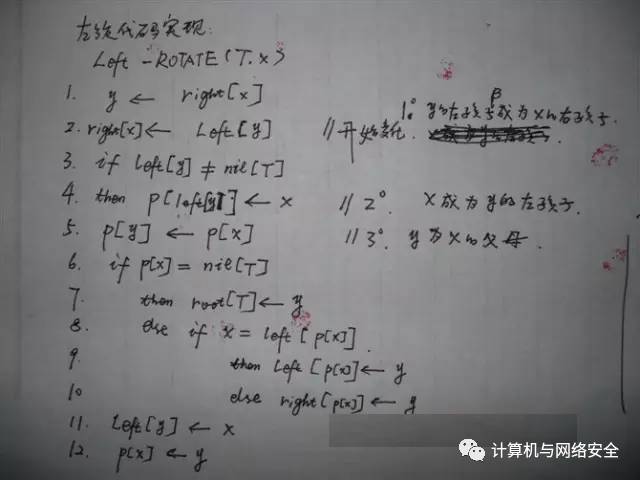 左旋代码实现:
Left-ROTATE(T.x)
1. y ← right[x]
β
2. right[x] ← Left[y] //开始变化. 1° y的左孩子成为x的右孩子.
3. if left[y] ≠ nil[T]
4. then p[left[y]] ← x //2°. x成为y的左孩子.
5. p[y] ← p[x] //3°. y为x的父母.
6. if p[x] = nil[T]
7. then root[T] ← y
8. else if x = left[p[x]].
9. then left[p[x]] ← y
10 else right[p[x]] ← y
11. Left[y] ← x
12. p[x] ← y
计算机与网络安全